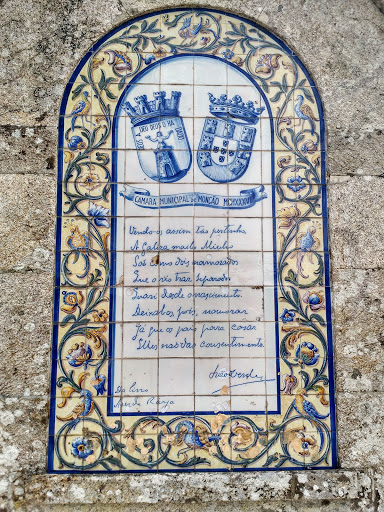 DEU DEUS O HA
CAMARA MUNICIPAL DE MONÇÃO
Vendo-os assim tão pertinho
A Galiza mail-o Minho
São como dois namorados
Que o rio traz separados
Quasi desde o nascimento.
Deixal-os, pois, namorar
Já que os paes para casar
Lhes não dão consentimento.
João Verde
Do livro
Ares da Raya